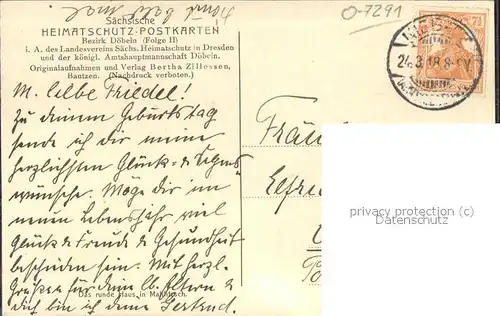 Sächsische
HEIMATSCHUTZ-POSTKARTEN
Bezirk Döbeln (Folge II)
i. A. des Landesvereins Sächs. Heimatschutz in Dresden
und der königl. Amtshauptmannschaft Döbeln.
Originalaufnahmen und Verlag Bertha Zillessen,
Bautzen. (Nachdruck verboten.)
O-7291
24.3.18.8-9V
7½
M. liebe Friedel!
Zu deinem Geburtstag
sende ich dir meine
herzlichsten Glück- & Segens
wünsche. Möge dir im
neuen Lebensjahr viel
Glück & Freude & Gesundheit
beschieden sein. Mit herzl.
Grüßen für deine lb. Eltern &
dich bin ich deine Gertrud.
Das runde Haus in
Fräu
Elfrie
privacy protection (c)
Datenschutz